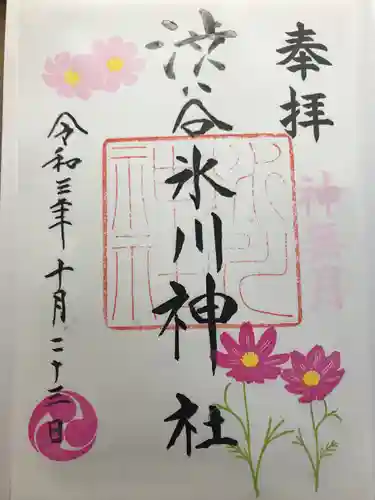 奉拝
神無月
渋谷氷川神社
令和三年十月二十三日